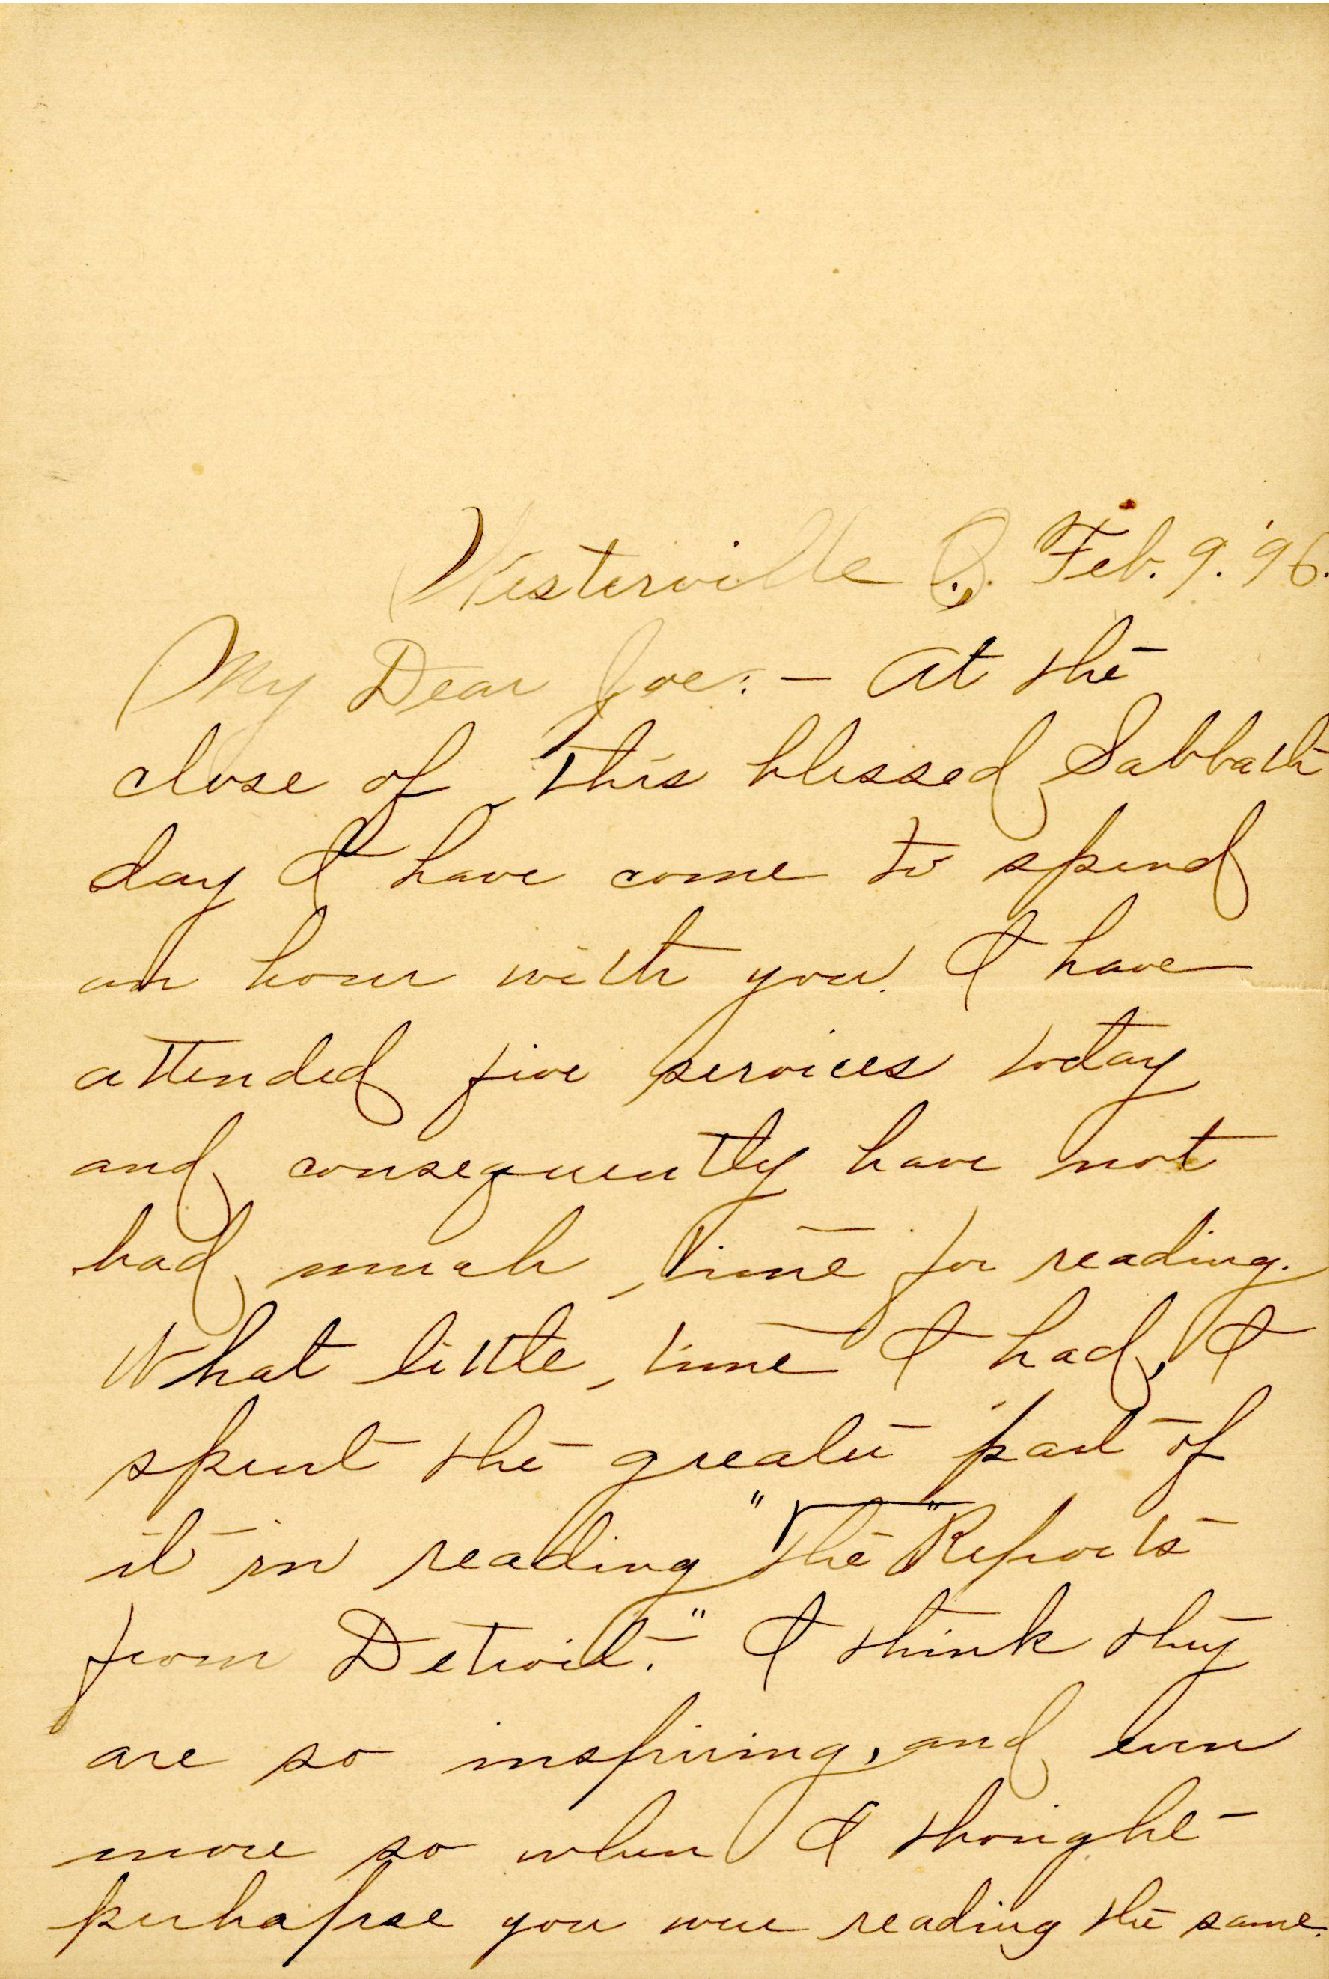 Westerville O. Feb. 9. '96.
My Dear Joe: — At the
close of this blessed Sabbath
day I have come to spend
an hour with you. I have
attended five services today
and consequently have not
had much time for reading.
What little time I had, I
spent the greater part of
it in reading "The "Reports
from Detroit." I think they
are so inspiring, and even
more so when I thought
perhapse you were reading the same.